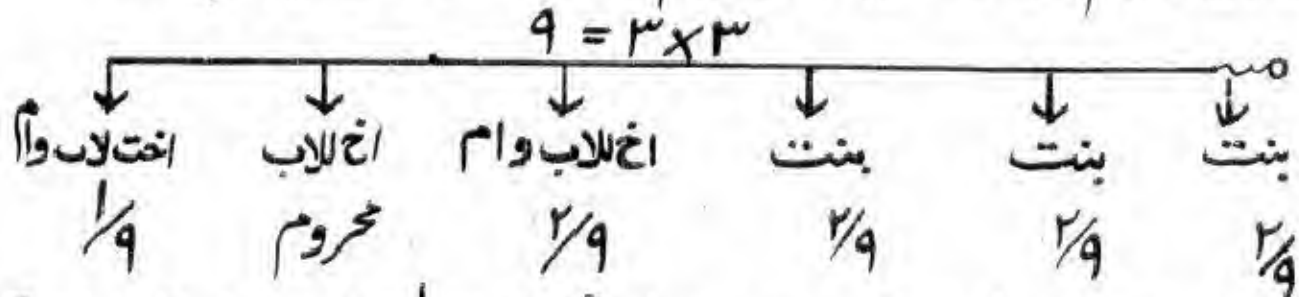 ۳×۳ = ۹
بنت بنت بنت اخ للاب وام اخ للاب اخت لاب وام
۲/۹ ۲/۹ ۲/۹ ۲/۹ محروم ۱/۹